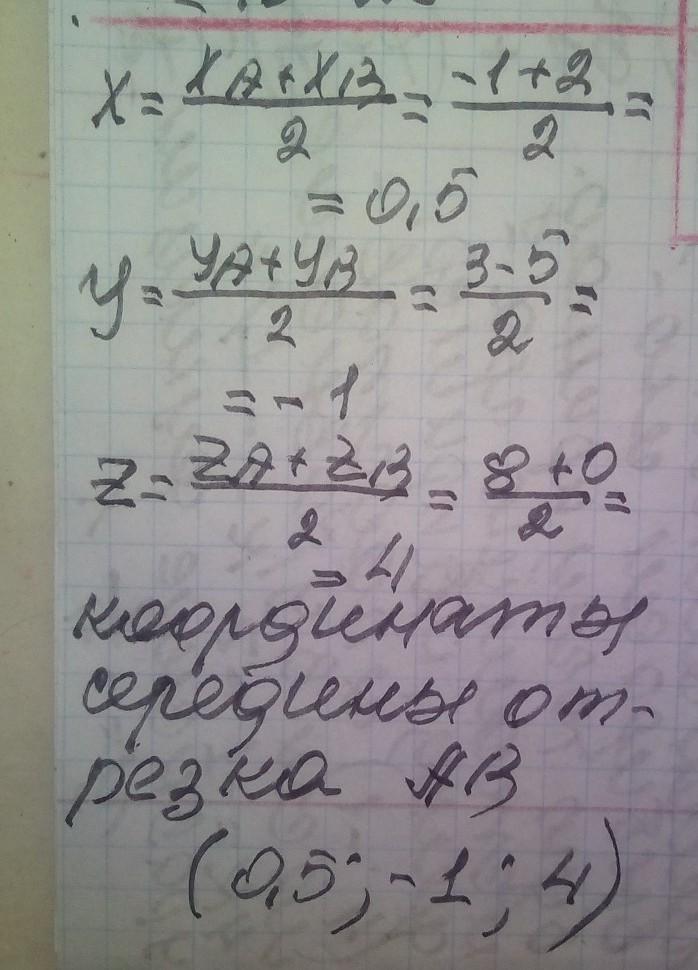 x = xA + xB / 2 = -1 + 2 / 2 =
= 0,5
y = yA + yB / 2 = 3 - 5 / 2 =
= - 1
z = zA + zB / 2 = 8 + 0 / 2 =
= 4
координаты
середины от-
резка AB
(0,5; -1; 4)